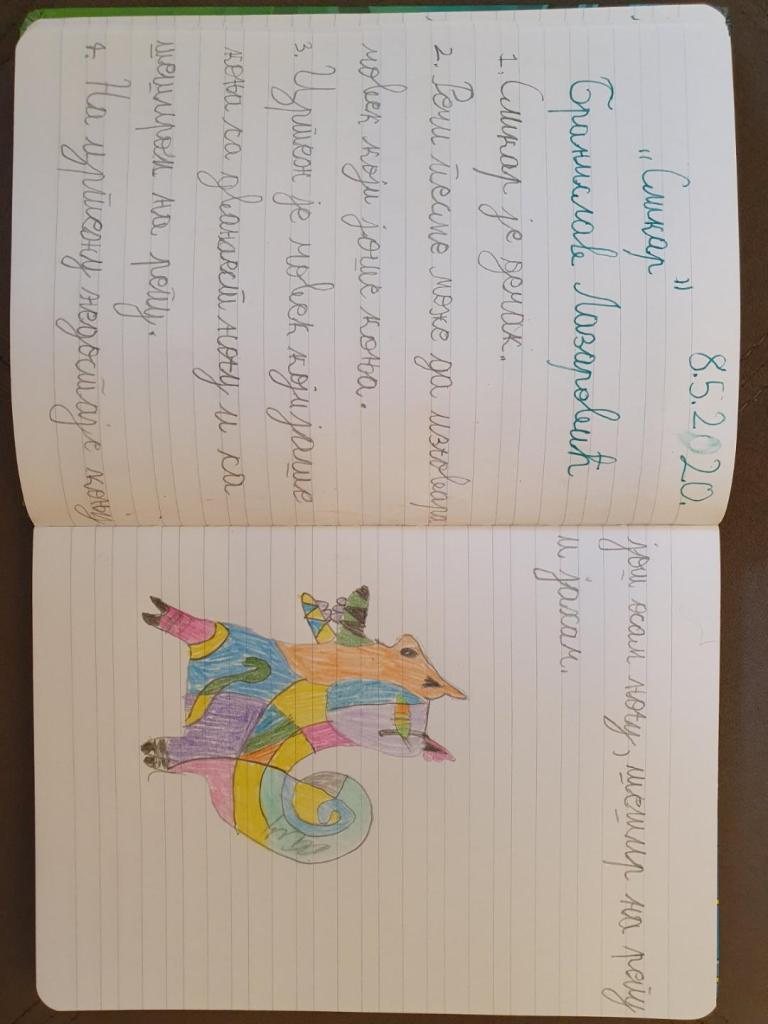 8.5.2020.
„Сликар”
Бранислав Лазаревић
1. Сликар је дечак.
2. Речи песме може да изговара
човек који јаше коња.
3. Цртеж је човек који јаше
коња са дванаест ногу и са
шеширом на репу.
4. На цртежу недостаје коњу
још осам ногу, шешир на репу
и јахач.